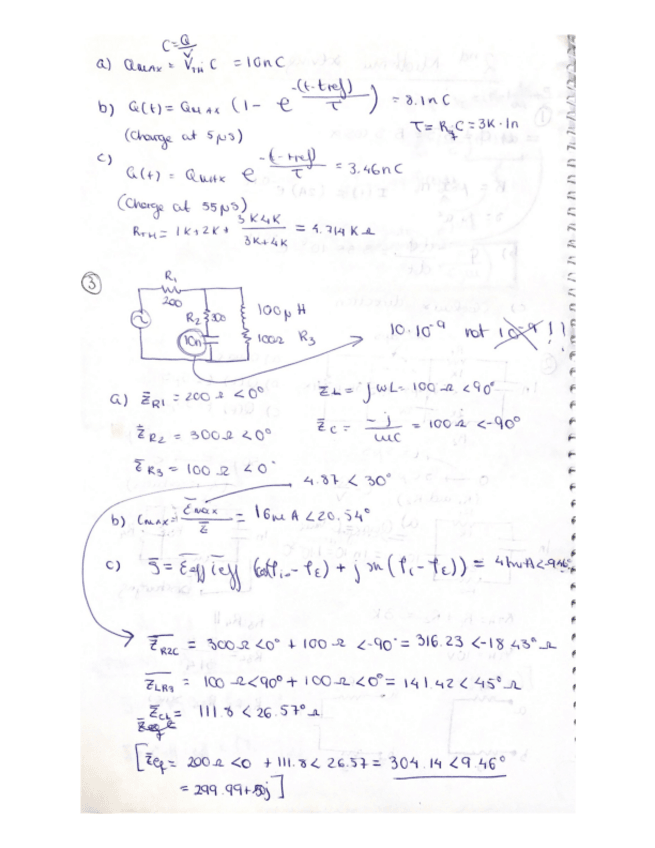 C=Q/V
a) Qmax = VTH C = 16nC
b) Q(t) = Qmax (1 - e^(-(t-tref)/τ)) = 8.1nC
(Charge at 5μs)
τ = Req C = 3K·1n
c) Q(t) = Qmax e^(-(t-tref)/τ) = 3.46nC
(Charge at 55μs)
RTH = 1K+2K+ 3K4K/3K+4K = 4.714KΩ
③
R1
200
R2 300
10n
100μH
100Ω R3
10·10^-9 not 10^-9 !!
a) Z̄R1 = 200Ω <0° Z̄L = jωL = 100Ω <90°
Z̄R2 = 300Ω <0° Z̄C = -j/ωC = 100Ω <-90°
Z̄R3 = 100Ω <0°
4.87 < 30°
b) Imax = Emax/Z̄ = 16mA <20.54°
c) S̄ = Eeff Ieff (cos(φi - φE) + j sin(φi - φE)) =
Z̄R2C = 300Ω<0° + 100Ω <-90° = 316.23 <-18.43° Ω
Z̄LR3 = 100Ω<90° + 100Ω<0° = 141.42 <45° Ω
Z̄CL = 111.8 <26.57° Ω
[Z̄eq = 200Ω <0 + 111.8 < 26.57 = 304.14 <9.46°
= 299.99+50j]